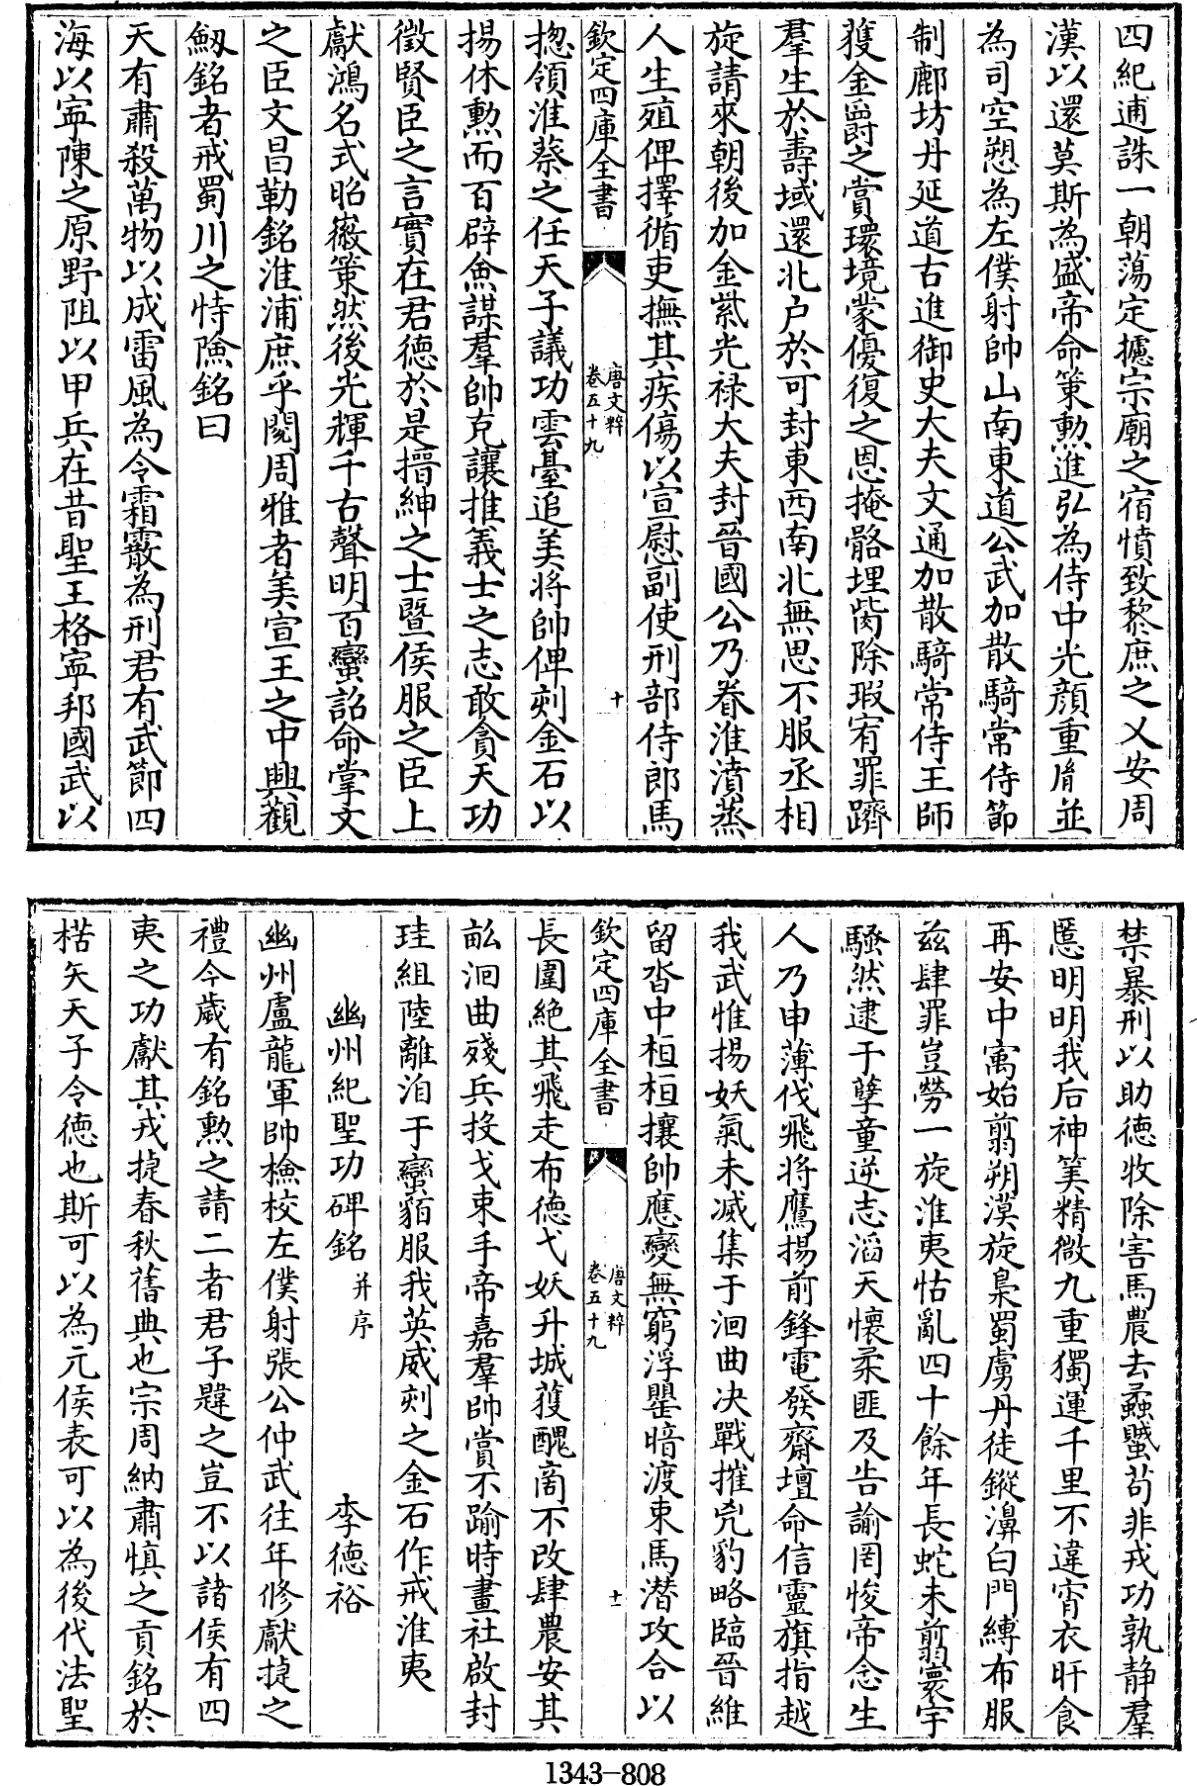 四紀逋誅一朝蕩定攄宗廟之宿憤致黎庶之乂安周
漢以還莫斯為盛帝命策勲進弘為侍中光顔重𦙍並
為司空愬為左僕射帥山南東道公武加散騎常侍節
制鄜坊丹延道古進御史大夫文通加散騎常侍王師
獲金爵之賞環境蒙優復之恩掩骼埋胔除瑕宥罪躋
羣生於壽域還北户於可封東西南北無思不服丞相
旋請來朝後加金紫光禄大夫封晉國公乃眷淮濆蒸
人生殖俾擇循吏撫其疾傷以宣慰副使刑部侍郎馬
欽定四庫全書
唐文粹
卷五十九
十
揔領淮蔡之任天子議功雲臺追美將帥俾刻金石以
揚休勲而百辟僉謀羣帥克讓推義士之志敢貪天功
徵賢臣之言實在君德於是搢紳之士暨侯服之臣上
獻鴻名式昭徽策然後光輝千古聲明百蠻詔命掌文
之臣文昌勒銘淮浦庶乎閱周雅者美宣王之中興觀
劒銘者戒蜀川之恃險銘曰
天有肅殺萬物以成雷風為令霜霰為刑君有武節四
海以寧陳之原野阻以甲兵在昔聖王格寧邦國武以
禁暴刑以助德牧除害馬農去蟊蠈苟非戎功孰靜羣
慝明明我后神筭精微九重獨運千里不違宵衣旰食
再安中寓始翦朔漠旋梟蜀虜丹徒鏦濞白門縛布服
兹肆罪豈勞一旅淮夷怙亂四十餘年長蛇未翦寰宇
騷然逮于孽童逆志滔天懷柔匪及告諭罔悛帝念生
人乃申薄伐飛將鷹揚前鋒電發齋壇命信靈旗指越
我武惟揚妖氣未滅集于洄曲決戰摧兇豹略臨晉維
留沓中桓桓攘帥應變無窮浮罌暗渡束馬潛攻合以
欽定四庫全書
唐文粹
卷五十九
十一
長圍絶其飛走布德弋妖升城獲醜啇不改肆農安其
畝洄曲殘兵投戈束手帝嘉羣帥賞不踰時畫社啟封
珪組陸離洎于蠻貊服我英威刻之金石作戒淮夷
幽州紀聖功碑銘 并序 李德裕
幽州盧龍軍帥檢校左僕射張公仲武往年修獻捷之
禮今歲有銘勲之請二者君子韙之豈不以諸侯有四
夷之功獻其戎捷春秋舊典也宗周納肅慎之貢銘於
楛矢天子令德也斯可以為元侯表可以為後代法聖
1343-808